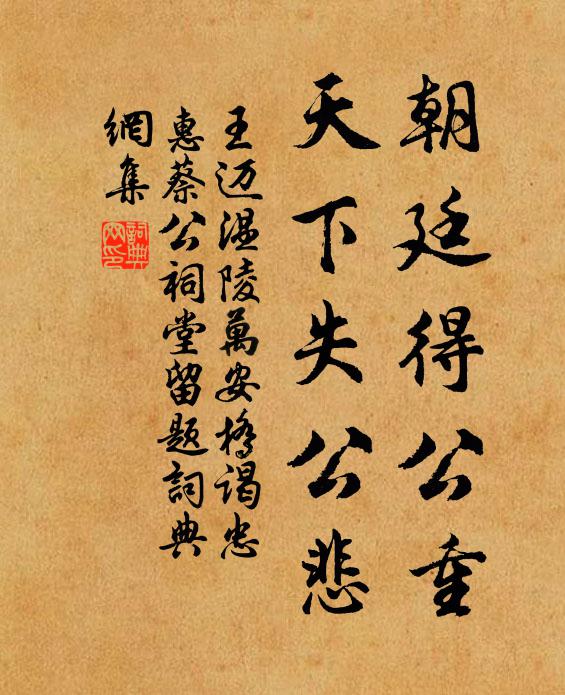 朝廷得公重
天下失公悲
王迈温陵萬安橋谒忠
惠蔡公祠堂留题詞典
網集
詞典
网印